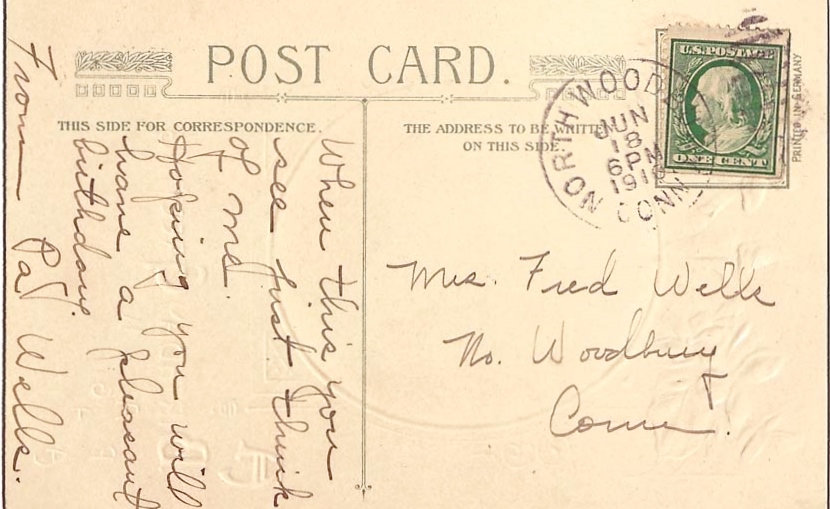 POST CARD.
THIS SIDE FOR CORRESPONDENCE.
THE ADDRESS TO BE WRITTEN
ON THIS SIDE
When this you
see just think
of me.
Hoping you will
have a pleasant
birthday.
From Pa Wells.
Mrs. Fred Wells
No. Woodbury
Conn.
NORTH WOOD
JUN
18
6 PM
191
CONN
U.S. POSTAGE
ONE CENT
PRINTED IN GERMANY